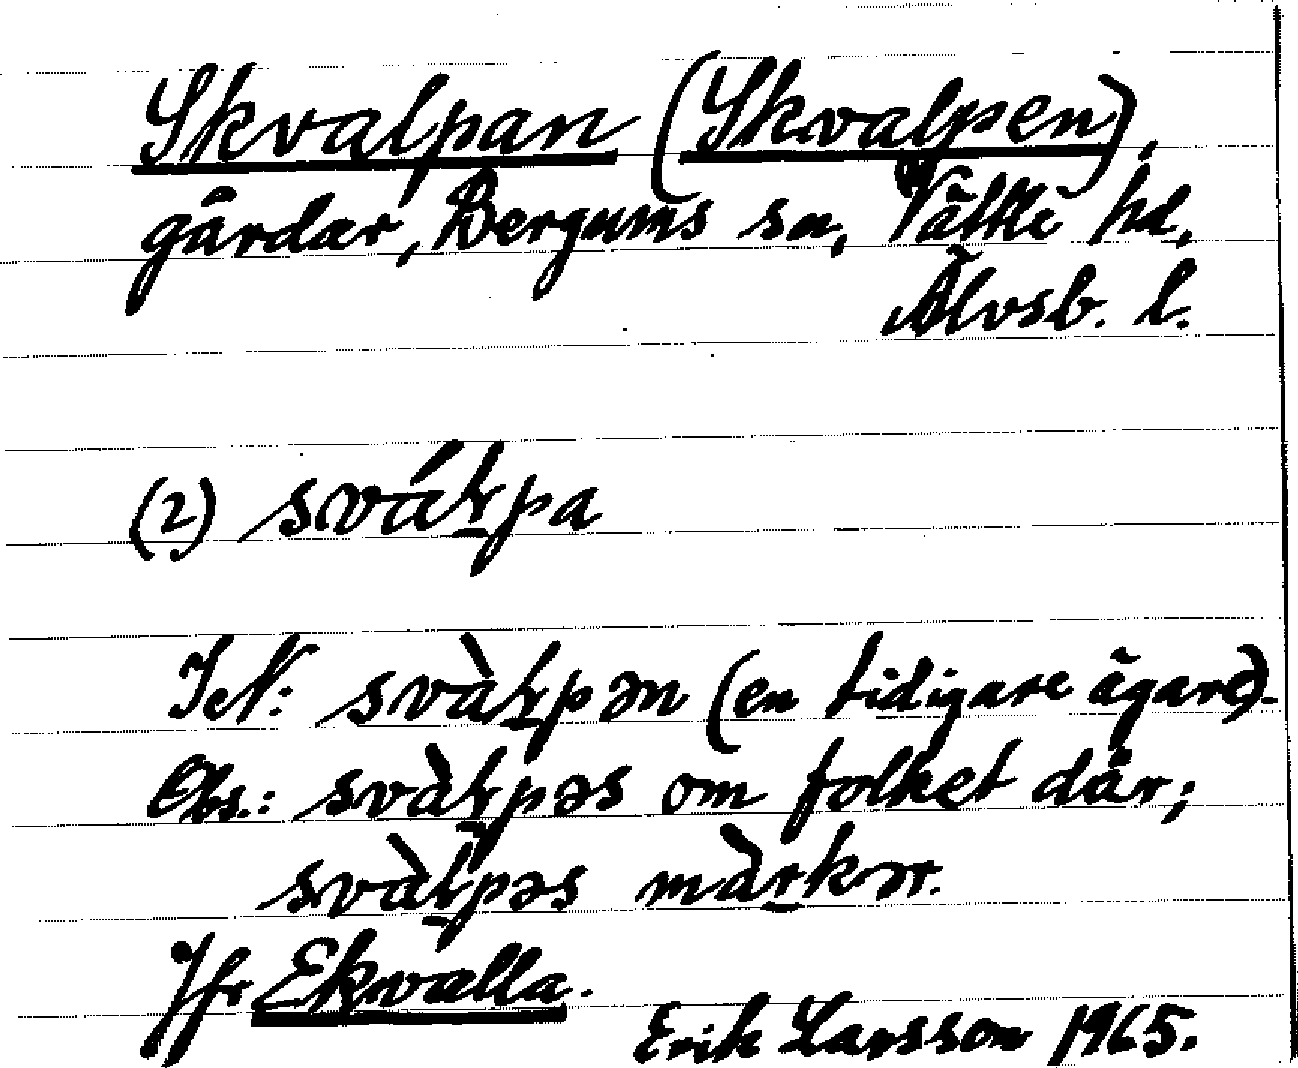 Skvalpan (Skvalpen),
gårdar, Bergums sn, Vättle hd,
Älvsb. l.
(2) sváłpa
IeN: svàłpən (en tidigare ägare).
Obs.: svàłpəs om folket där;
svàłpəs màrkər.
Jfr Ekvalla.
Erik Larsson 1965.